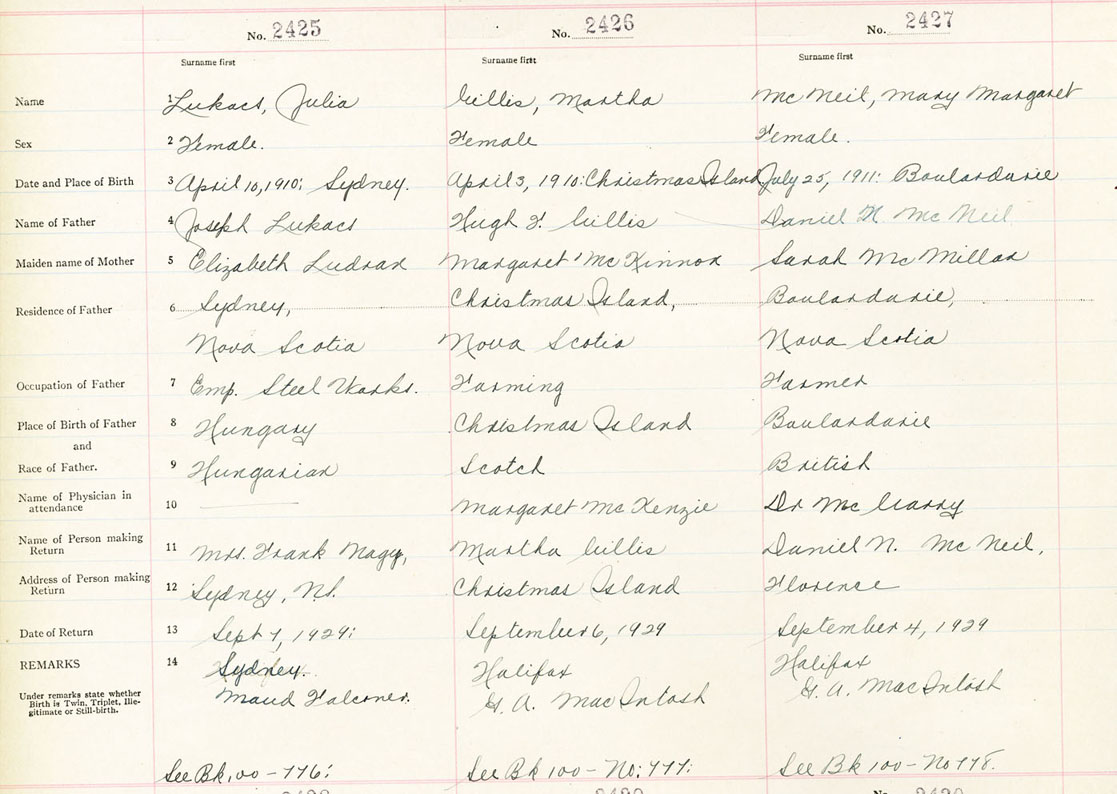 No. 2425 No. 2426 No. 2427
Surname first Surname first Surname first
Name 1 Lukacs, Julia Gillis, Martha Mc Neil, Mary Margaret
Sex 2 Female. Female Female.
Date and Place of Birth 3 April 10, 1910; Sydney. April 3, 1910: Christmas Island July 25, 1911: Boulardarie
Name of Father 4 Joseph Lukacs Hugh F. Gillis Daniel N. Mc Neil
Maiden name of Mother 5 Elizabeth Margaret Mc Kinnon Sarah Mc Millan
Residence of Father 6 Sydney, Christmas Island, Boulardarie,
Nova Scotia Nova Scotia Nova Scotia
Occupation of Father 7 Emp. Steel Works. Farming Farmer
Place of Birth of Father 8 Hungary Christmas Island Boulardarie
and
Race of Father. 9 Hungarian Scotch British
Name of Physician in
attendance 10 Margaret Mc Kenzie Dr Mc Garry
Name of Person making
Return 11 Mrs. Frank Nagy, Martha Gillis Daniel N. Mc Neil,
Address of Person making
Return 12 Sydney, N.S. Christmas Island Florence
Date of Return 13 Sept 7, 1929: September 6, 1929 September 4, 1929
REMARKS 14 Sydney. Halifax Halifax
Under remarks state whether
Birth is Twin, Triplet, Ille-
gitimate or Still-birth.
Maud Falconer. G. A. MacIntosh G. A. MacIntosh
See Bk 100 - 776: See Bk 100 - No: 777: See Bk 100 - No 778.